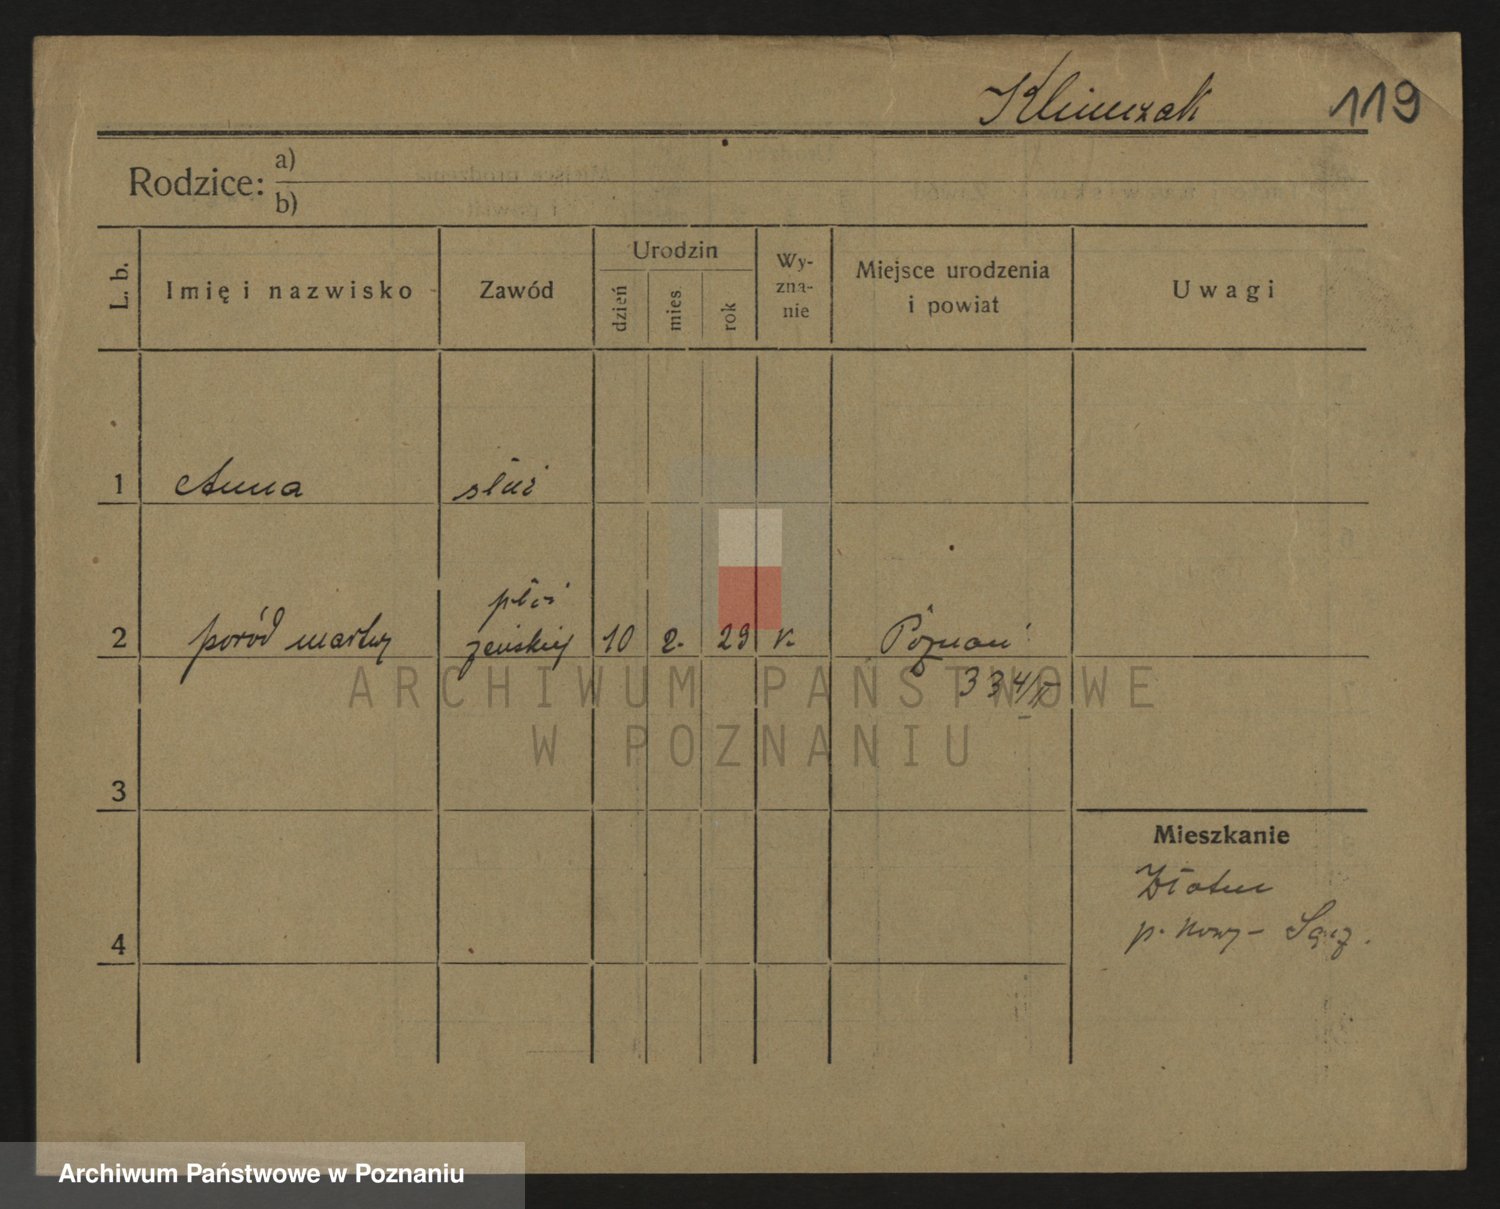 Klimczak 119
Rodzice: a)
b)
L. b. Imię i nazwisko Zawód Urodzin dzień mies. rok Wy-zna-nie Miejsce urodzenia i powiat Uwagi
1 Anna służ
płci
2 poród martwy żeńskiej 10 2. 29 k. Poznań
334/II
ARCHIWUM PAŃSTWOWE
W POZNANIU
3
Mieszkanie
p. Nowy-Sącz.
4
Archiwum Państwowe w Poznaniu